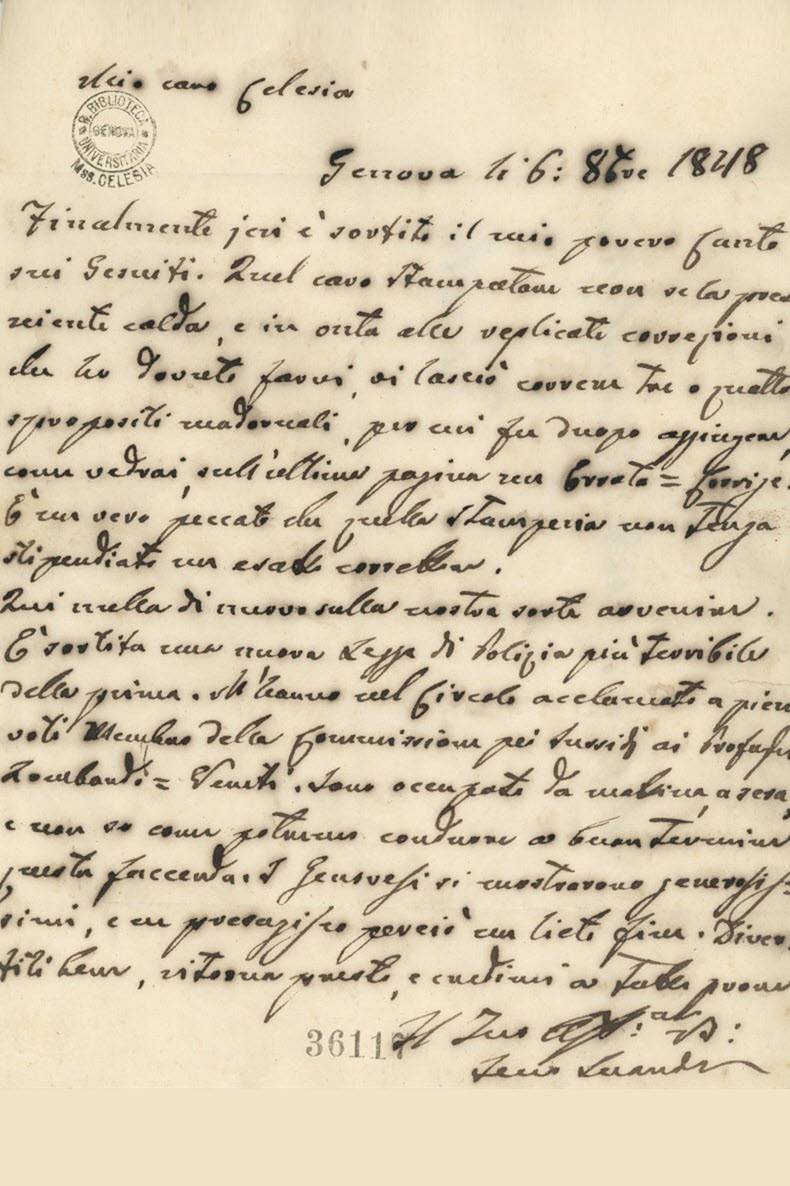 Mio caro Celesia
R. BIBLIOTECA UNIVERSITARIA
GENOVA
Mss. CELESIA
Genova li 6: 8bre 1848
Finalmente jeri è sortito il mio povero Canto
sui Gesuiti. Quel caro Stampatore non se la prese
niente calda, e in onta alle replicate correzioni
che ho dovuto farvi, vi lasciò correre tre o quattro
spropositi madornali, per cui fu duopo aggiugere,
come vedrai, sull'ultima pagina un Errata = Corrige.
È un vero peccato che quella Stamperia non tenga
stipendiato un esatto correttore.
Qui nulla di nuovo sulla nostra sorte avvenire.
È sortita una nuova Legge di Polizia più terribile
della prima. M'hanno nel Circolo acclamato a pieni
voti Membro della Commissione pei sussidj ai Profughi
Lombardi = Veneti. Sono occupato da mattina, a sera,
e non so come potremo condurre a buon termine
questa faccenda. I Genovesi si mostrarono generosis=
simi, e ne presagisco perciò un lieto fine. Diver-
titi bene, ritorna presto, e credimi a tutte prove
Il Tuo
36117